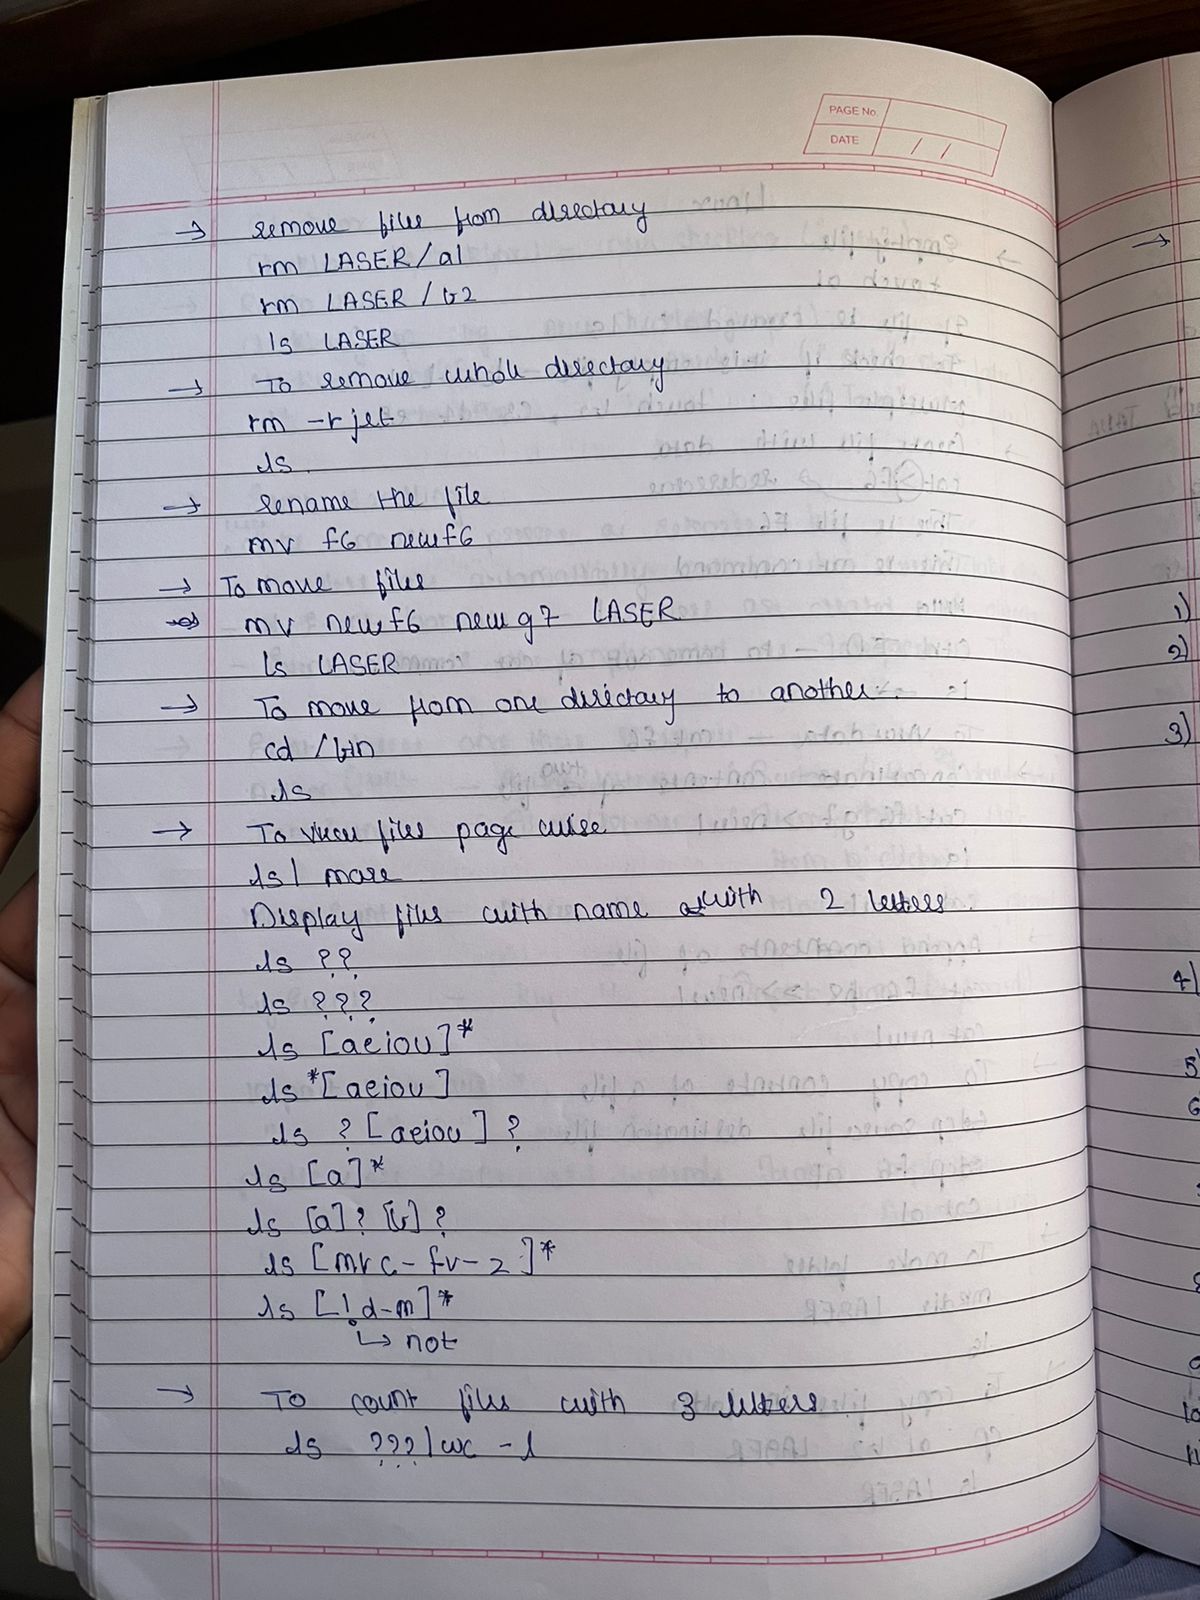 PAGE No.
DATE / /
→ remove files from directory
rm LASER/a1
rm LASER/b2
ls LASER
→ To remove whole directory
rm -r jet
ls
→ rename the file
mv f6 newf6
→ To move files
mv newf6 newg7 LASER
ls LASER
→ To move from one directory to another.
cd /bin
ls
→ To view files page wise
ls | more
Display files with name with 2 letters.
ls ??
ls ???
ls [aeiou]*
ls *[aeiou]
ls ?[aeiou]?
ls [a]*
ls [a]?[b]?
ls [mrc-fv-z]*
ls [!d-m]*
↳ not
→ To count files with 3 letters
ls ???|wc -l
→
1)
2)
3)
4)
5)
6
10
11